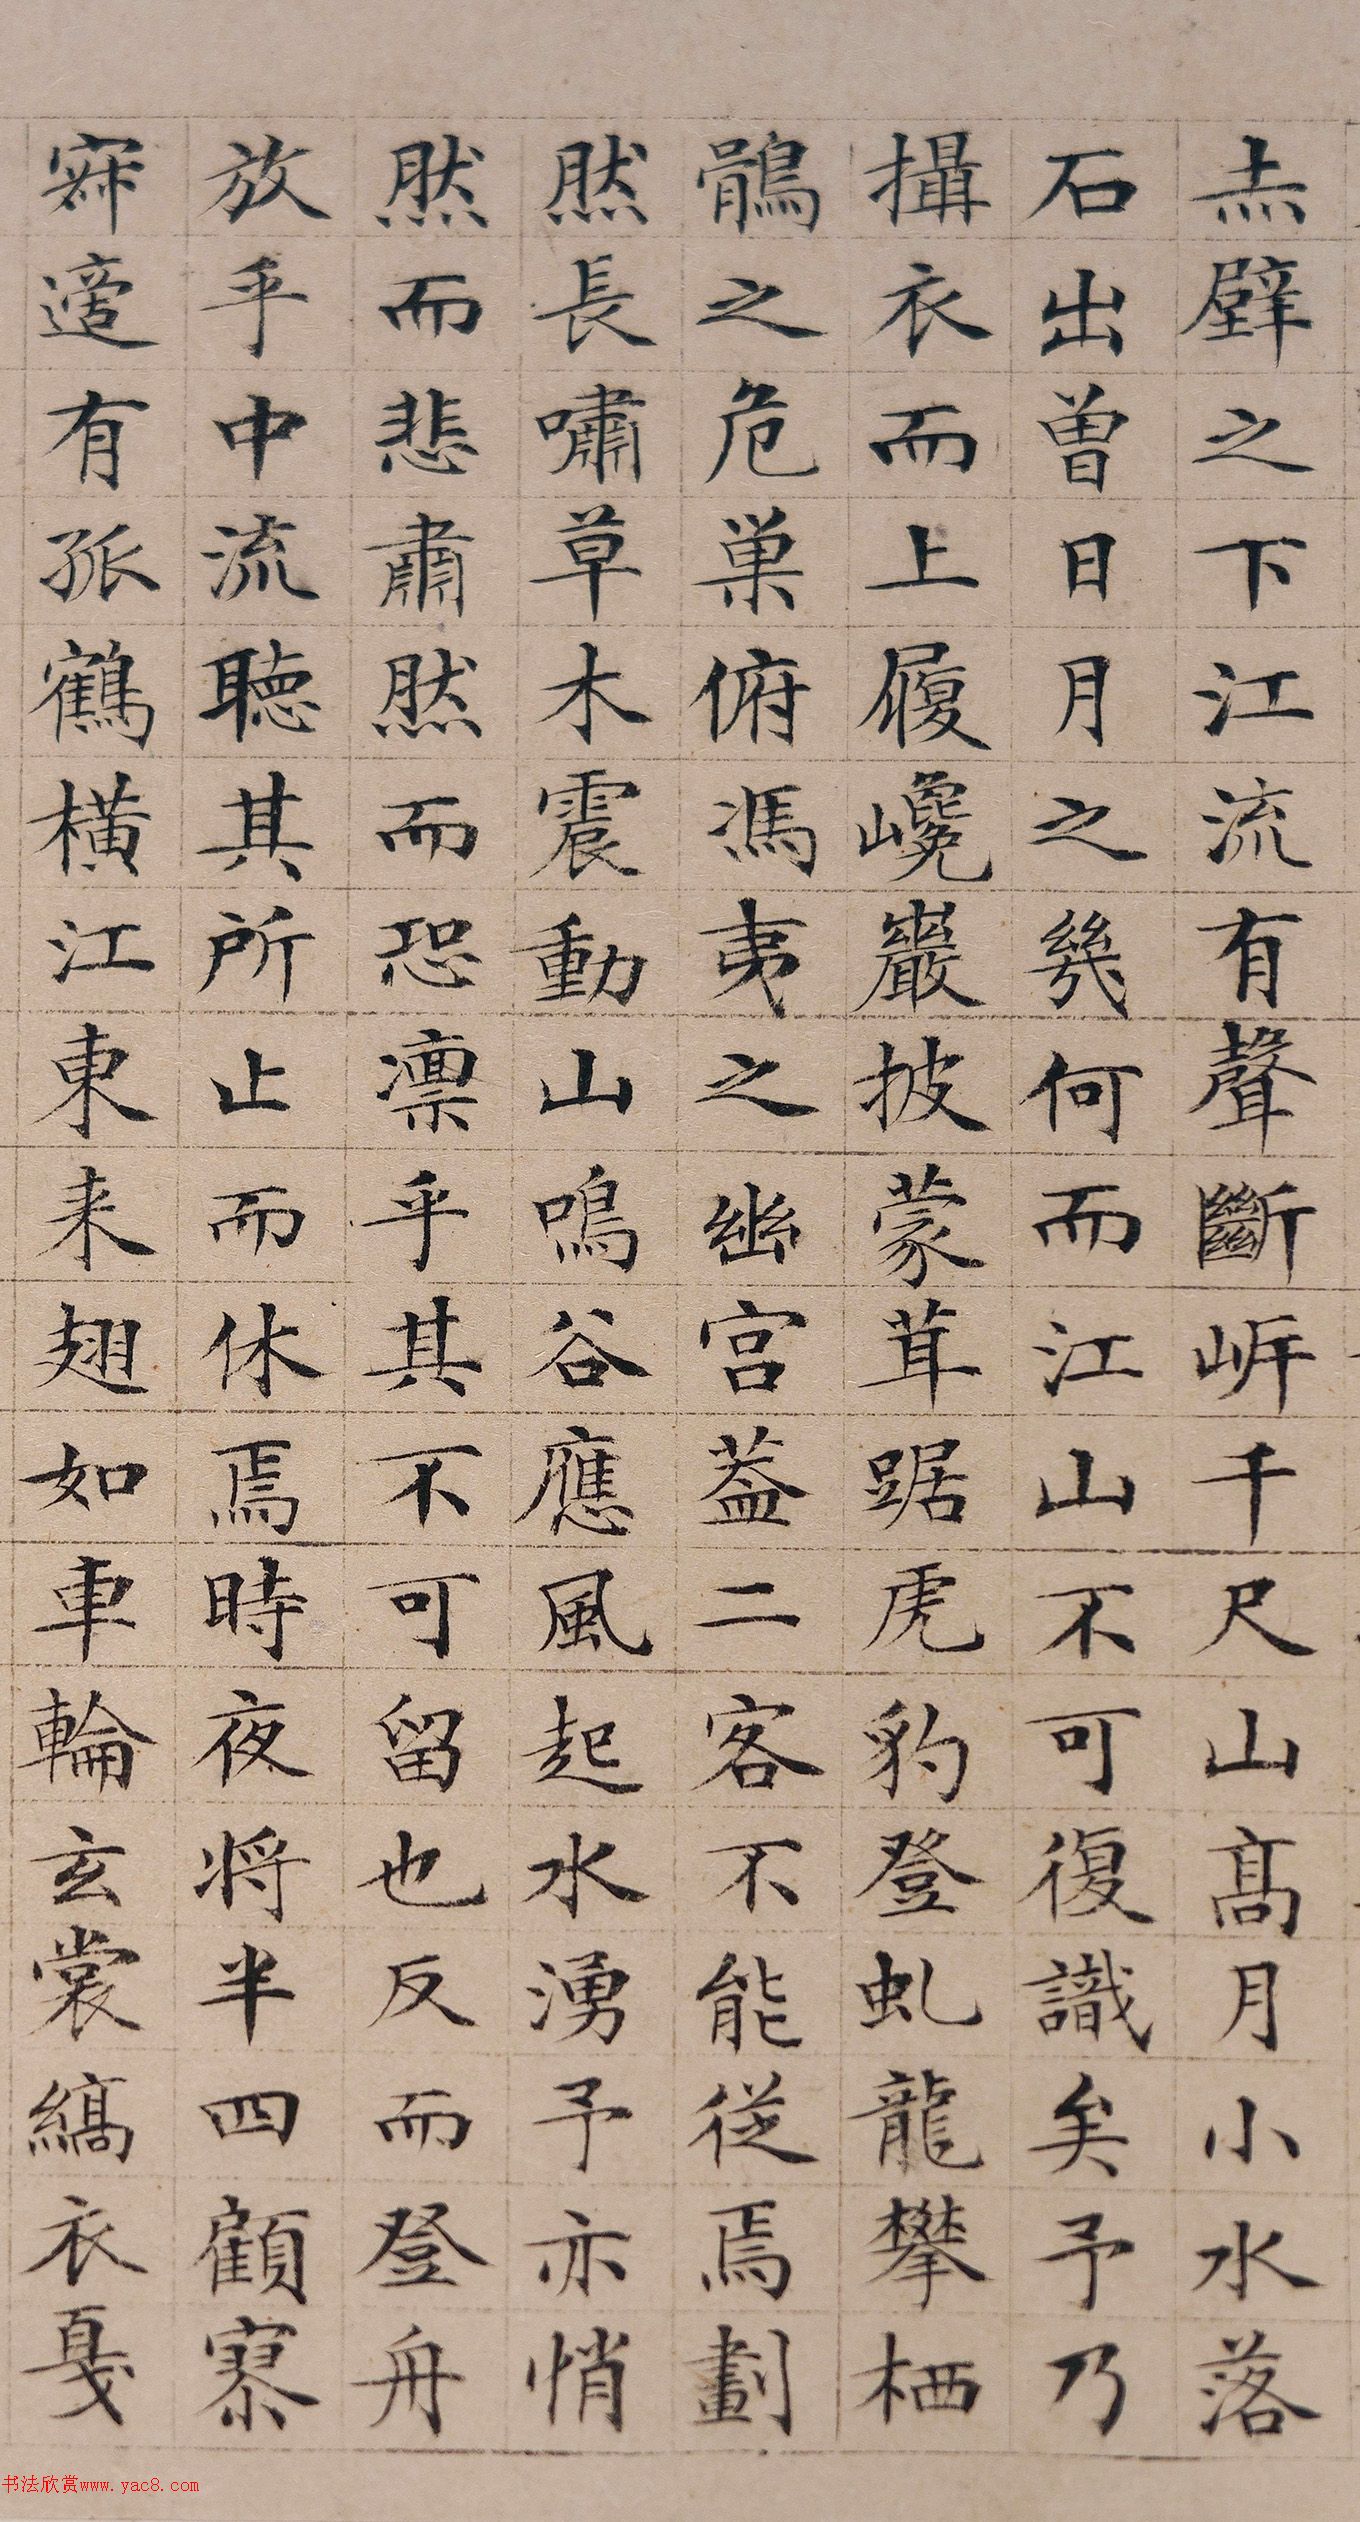 赤壁之下江流有聲斷岍千尺山高月小水落
石出曽日月之幾何而江山不可復識矣予乃
攝衣而上履巉巖披蒙茸踞虎豹登虬龍攀栖
鶻之危巢俯馮夷之幽宮葢二客不能從焉劃
然長嘯草木震動山鳴谷應風起水湧予亦悄
然而悲肅然而恐凛乎其不可留也反而登舟
放乎中流聽其所止而休焉時夜将半四顧寥
寂適有孤鶴橫江東来翅如車輪玄裳縞衣戛
书法欣赏www.yac8.com